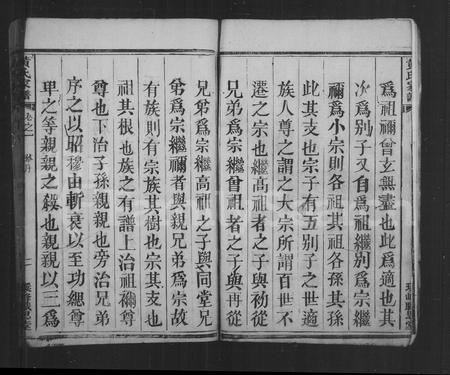 爲祖禰曾玄無盡也此爲適也其
次爲别子又自爲祖繼别爲宗繼
禰爲小宗則各祖其祖各孫其孫
此其支也宗子有五别子之世適
族人尊之謂之大宗所謂百世不
遷之宗也繼高祖者之子與初從
兄弟爲宗繼曾祖者之子與再從
兄弟爲宗繼高祖之子與同堂兄
弟爲宗繼禰者與親兄弟爲宗故
有族則有宗族其樹也宗其支也
祖其根也族之有譜上治祖禰尊
尊也下治子孫親親也旁治兄弟
序之以昭穆由斬衰以至功緦尊
卑之等親親之殺也親親以三爲
黄氏家譜
卷之一